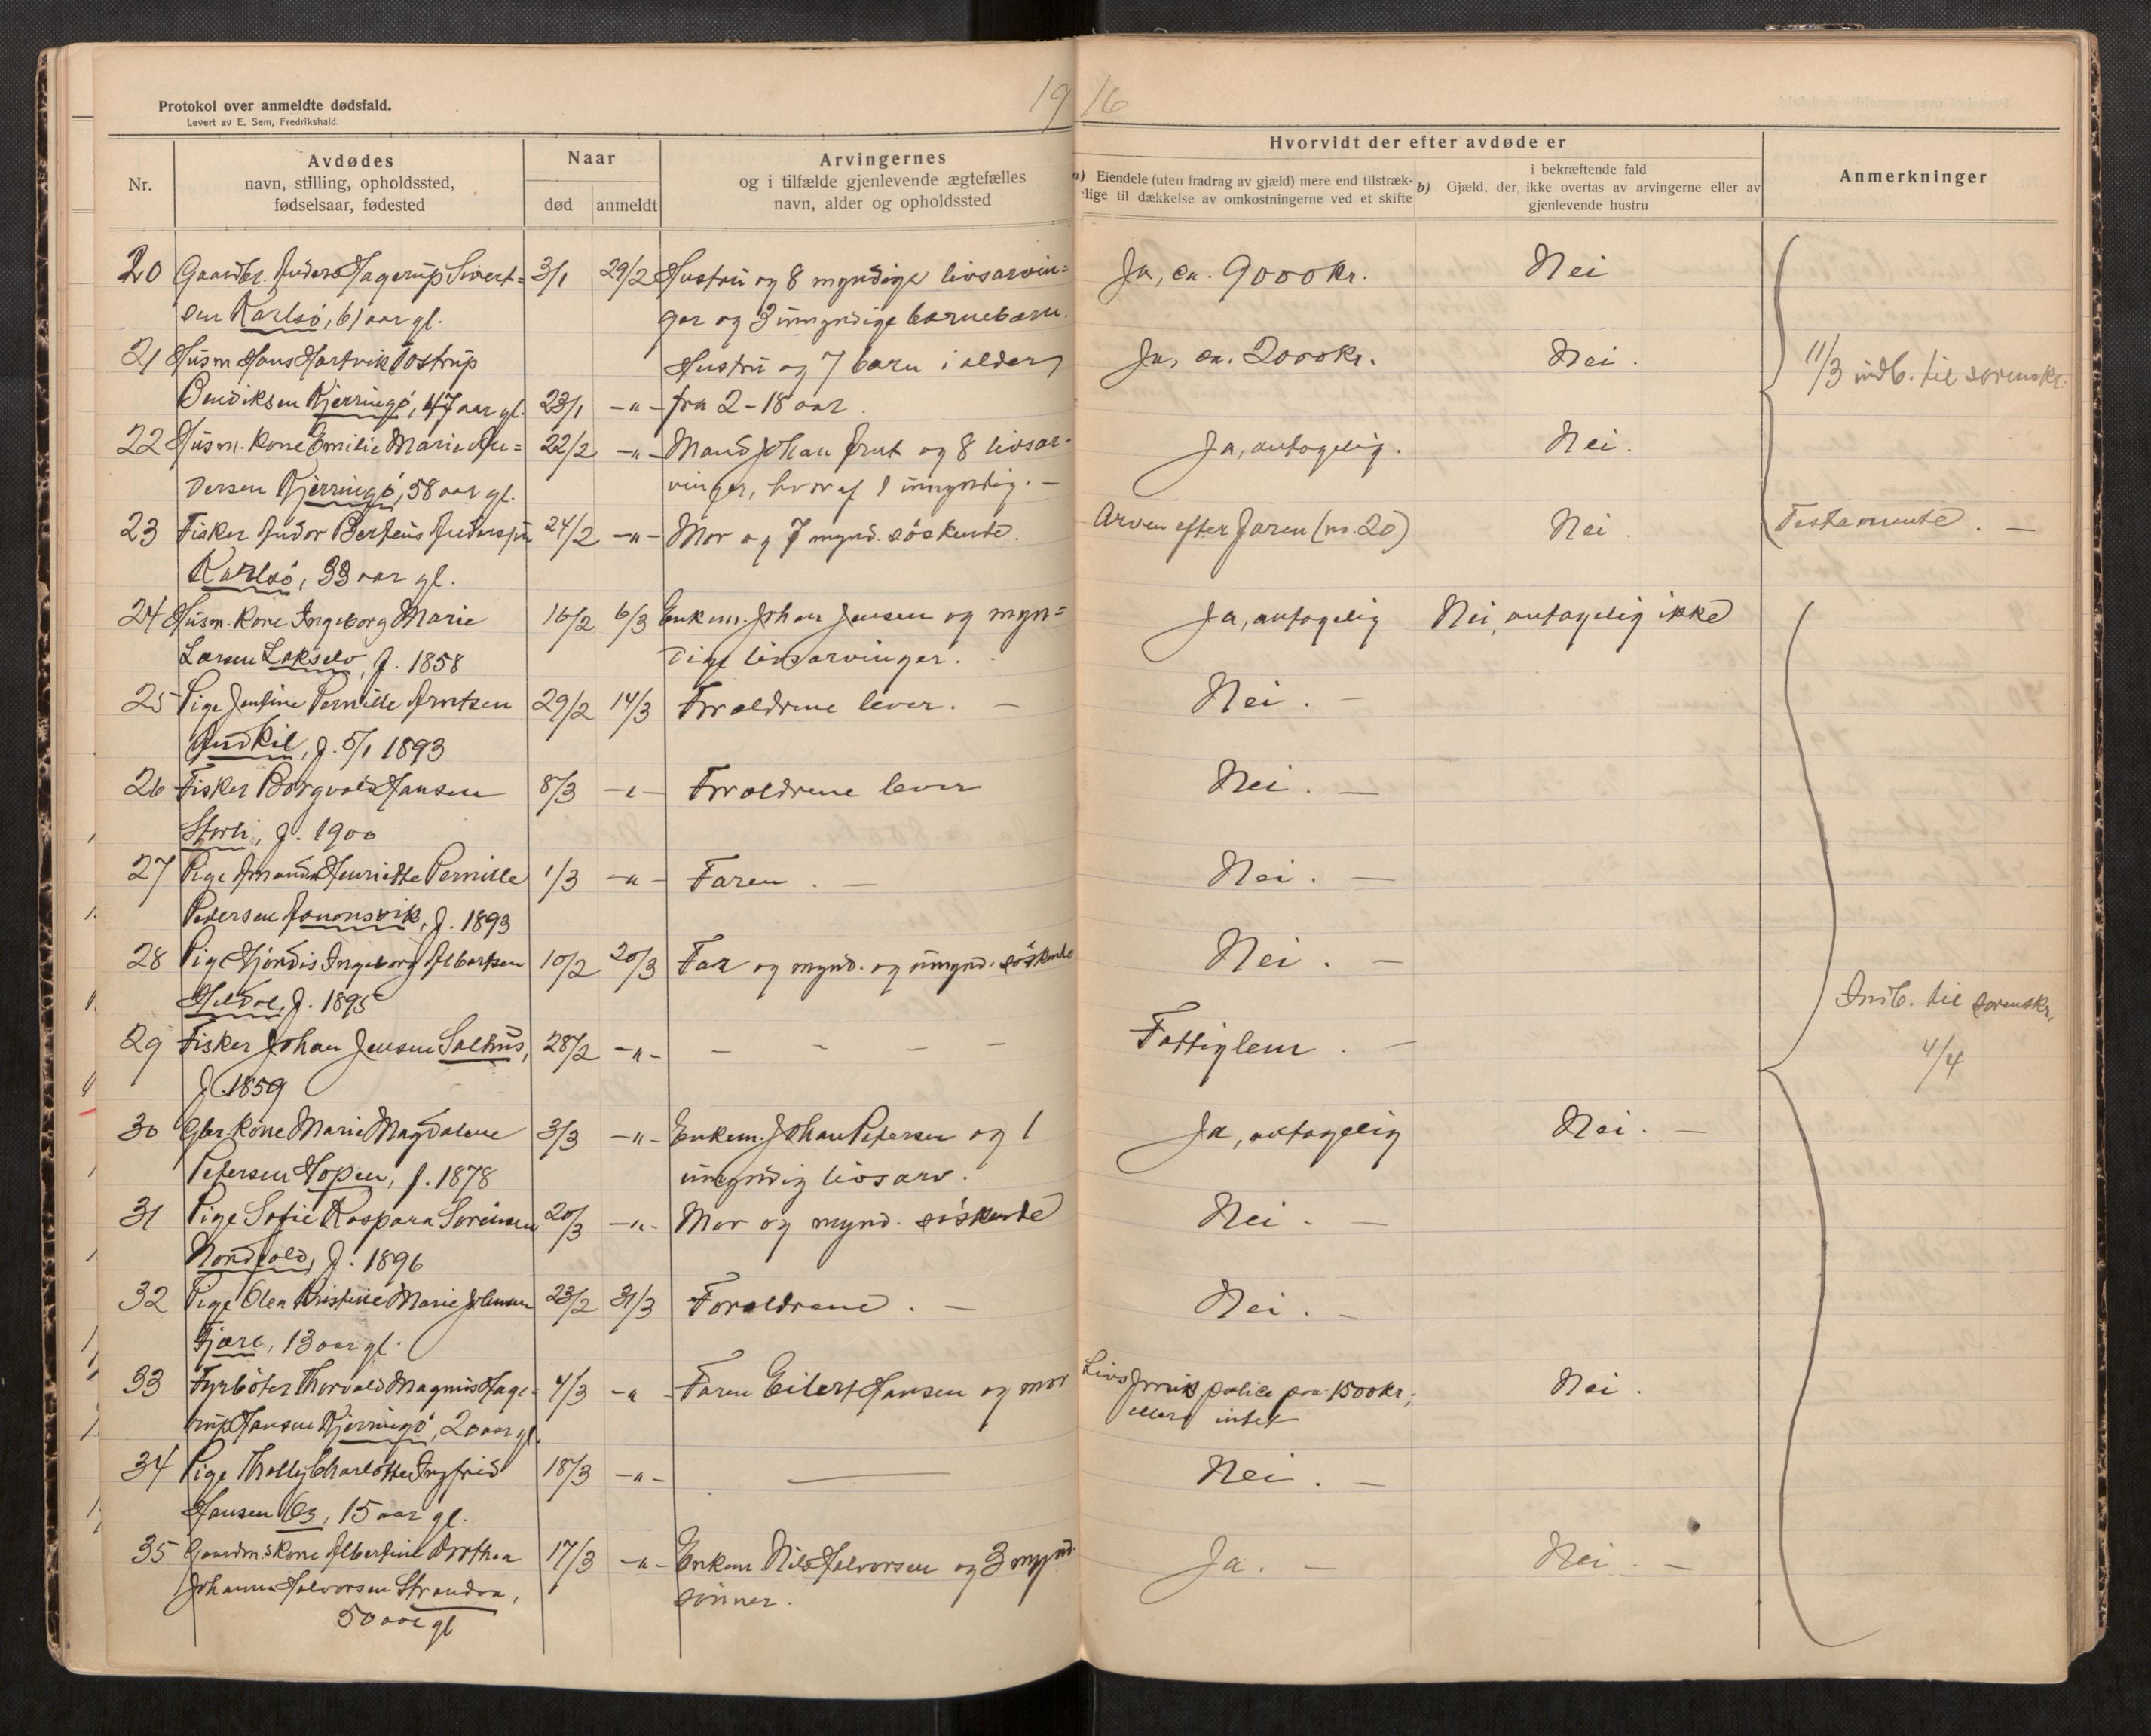 Protokol over anmeldte dødsfald.
Levert av E. Sem, Fredrikshald.
1916
Nr.
Avdødes
navn, stilling, opholdssted,
fødselsaar, fødested
Naar
død
anmeldt
Arvingernes
og i tilfælde gjenlevende ægtefælles
navn, alder og opholdssted
Hvorvidt der efter avdøde er
a) Eiendele (uten fradrag av gjæld) mere end tilstræk-
kelige til dækkelse av omkostningerne ved et skifte
i bekræftende fald
b) Gjæld, der ikke overtas av arvingerne eller av
gjenlevende hustru
Anmerkninger
20 Gaardbr. Anders Hagerup Sivert= 3/1 29/2 Hustru og 8 myndige livsarvin= Ja, ca. 9000 kr. Nei
sen Karlsö, 61 aar gl. ger og 3 umyndige barnebarn.
21 Husm Hans Hartvik Tostrup Hustru og 7 barn i alder Ja, ca. 2000 kr. Nei. 11/3 indb. til sorenskr.
Bendiksen Kjerringö, 47 aar gl. 23/1 -"- fra 2-18 aar.
22 Husm. kone Emilie Marie An= 22/2 -"- Mand Johan Arnt og 8 livsar- Ja, antagelig. Nei.
dersen Kjerringö, 58 aar gl. vinger, hvoraf 1 umyndig. -
23 Fisker Andor Berteus Anderssen 24/2 -"- Mor og 7 mynd. söskende. Arven efter faren (no. 20) Nei. Testamente. -
Karlsö, 33 aar gl.
24 Husm. kone Ingeborg Marie 16/2 6/3 Enkem. Johan Jensen og myn= Ja, antagelig Nei, antagelig ikke
Larsen Lakselv, f. 1858 dige livsarvinger.
25 Pige Jentine Pernille Arntsen 29/2 14/3 Foræeldrene lever. - Nei. -
Audkil, f. 5/1 1893
26 Fisker Borgvald Hansen 8/3 -"- Forældrene lever Nei. -
Storli, f. 1900
27 Pige Amanda Henriette Pernille 1/3 -"- Faren. - Nei. -
Pedersen Asmonsvik, f. 1893
28 Pige Hjördis Ingeborg Albertsen 10/2 20/3 Far og mynd. og umynd. söskende Nei. -
Hildal, f. 1895 Indb. til sorenskr.
29 Fisker Johan Jensen Salhus, 28/2 -"- - - - - Fattiglem. - 4/4
f. 1859
30 Gbr. kone Marie Magdalene 3/3 -"- Enkem. Johan Petersen og 1 Ja, antagelig Nei. -
Petersen Hopen, f. 1878 umyndig livsarv.
31 Pige Sofie Kaspara Sorensen 20/3 -"- Mor og mynd. söskende Nei. -
Nordfold, f. 1896
32 Pige Olea Kristine Marie Johnsen 23/2 31/3 Forældrene. - Nei. -
Fjære, 13 aar gl.
33 Fyrböter Thorvald Magnus Hage= 4/3 -"- Faren Eilert Hansen og mor Livsforsik. police paa 1500 kr, Nei.
rup Hansen Kjerringö, 20 aar gl. ellers intet
34 Pige Tholly Charlotte Ingfrid 18/3 -"- - Nei. -
Hansen Os, 15 aar gl.
35 Gaardm.s kone Albertine Dorthea 17/3 -"- Enkem Nils Halvorsen og 3 mynd. Ja. - Nei. -
Johanna Halvorsen Strandaa, sönner.
50 aar gl